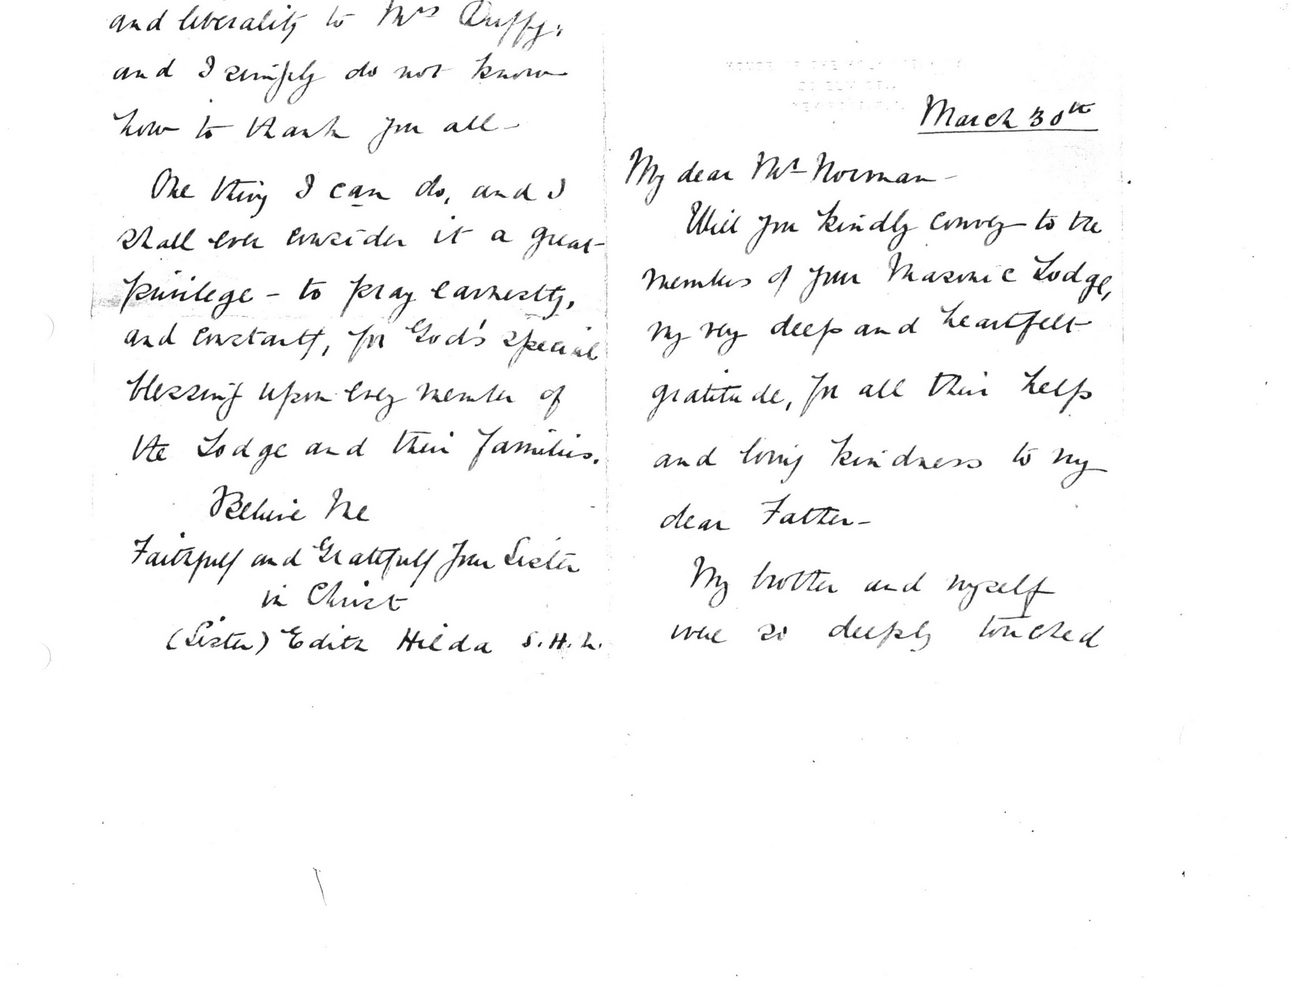 March 30th
My dear Mr Norman -
Will you kindly convey to the
members of your Masonic Lodge,
my very deep and heartfelt
gratitude, for all their help
and loving kindness to my
dear Father -
My brother and myself
were so deeply touched
and liberality to Mrs Duffy,
and I simply do not know
how to thank you all -
One thing I can do, and I
shall ever consider it a great
privilege - to pray earnestly,
and constantly, for God's special
blessing upon every member of
the Lodge and their families.
Believe Me
Faithfully and Gratefully Your Sister
in Christ
(Sister) Edith Hilda S.H.